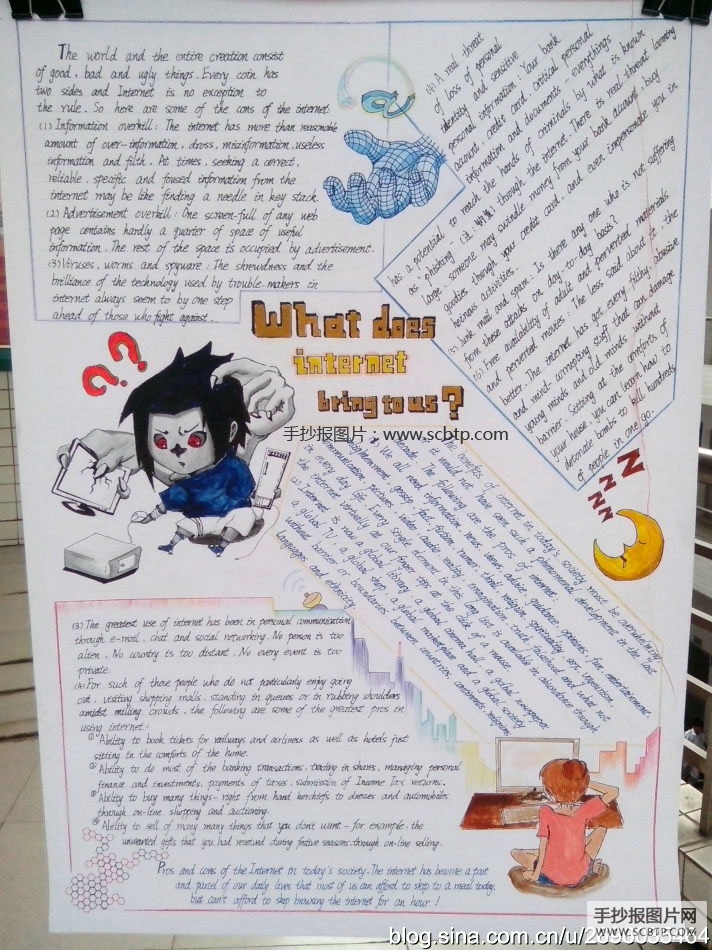 The world and the entire creation consist
of good, bad and ugly things. Every coin has
two sides and Internet is no exception to
the rule. So here are some of the cons of the internet
(1) Information overkill: The internet has more than reasonable
amount of over-information, dross, misinformation, useless
information and filth. At times, seeking a correct,
reliable, specific and foused information from the
internet may be like finding a needle in key stack.
(2) Advertisement overkill: One screen-full of any web
page contains hardly a quarter of space of useful
information. The rest of the space is occupied by advertisement.
(3) Viruses, worms and spyware: The shrewdness and the
brilliance of the technology used by trouble-makers in
internet always seem to by one step
ahead of those who fight against.
(4) A real threat
of loss of personal
identity and sensitive
personal information: Your bank
account, credit card, critical personal
information and documents - everythings
has a potential to reach the hands of criminals by what is known
as: phishing: through the internet. There is real threat
large someone may swindle money from your bank account, buy
goodies through your credit card and even impersonate you in
heinous activities.
(5) Junk mail and spam: Is there any one who is not suffering
from these attacks on day-to-day basis?
(6) Free availability of adult and perverted materials
and perverted movies: The less said about it, the
better. The internet has got every filthy, abusive
and mind-corrupting stuff that can damage
young minds and old minds without
barrier. Sitting at the comforts of
your house, you can learn how to
detonate bombs to kill hundreds
of people in one go.
What does
internet
bring to us?
手抄报图片：www.scbtp.com
??
Z
Z
Z
Z
The benefits of internet in today's society must be contributing
it would not have seen such a phenomenal development in the last
decade. The following are the pros of internet:
(1) We all need information, news, views, advice, guidance, games, fun, entertainment
communication, pictures, video, audio, reality, imagination, truth, falsehood and what not
in every day life. Every single element in this long list is available in abundance through
the internet virtually at our finger tips at the click of a mouse.
(2) Internet is now a global library, a global cinema hall, a global newspaper,
a global TV, a global shop, a global marketplace and a global society
without barrier or boundaries between countries, continents, religions,
languages and ethnicity.
(3) The greatest use of internet has been in personal communication
through e-mail, chat and social networking. No person is too
alien. No country is too distant. No every event is too
private.
(4) For such of those people who do not particularly enjoy going
out, visiting shopping malls, standing in queues or in rubbing shoulders
amidst milling crowds, the following are some of the greatest pros in
using internet:
① Ability to book tickets for railways and airliness as well as hotels just
sitting in the comforts of the home.
② Ability to do most of the banking transactions, trading in shares, managing personal
finance and investments, payments of taxes, submission of Income Tax returns.
③ Ability to buy many things - right from hand kerchiefs to dresses and automobiles
through on-line shopping and auctioning.
④ Ability to sell of many many things that you don't want - for example, the
unwanted gifts that you had received during festive seasons through on-line selling.
Pros and cons of the Internet in today's society. The internet has become a part
and parcel of our daily lives that most of us can afford to skip to a meal today,
but can't afford to skip browsing the internet for an hour!
手抄报图片网
WWW.SCBTP.COM